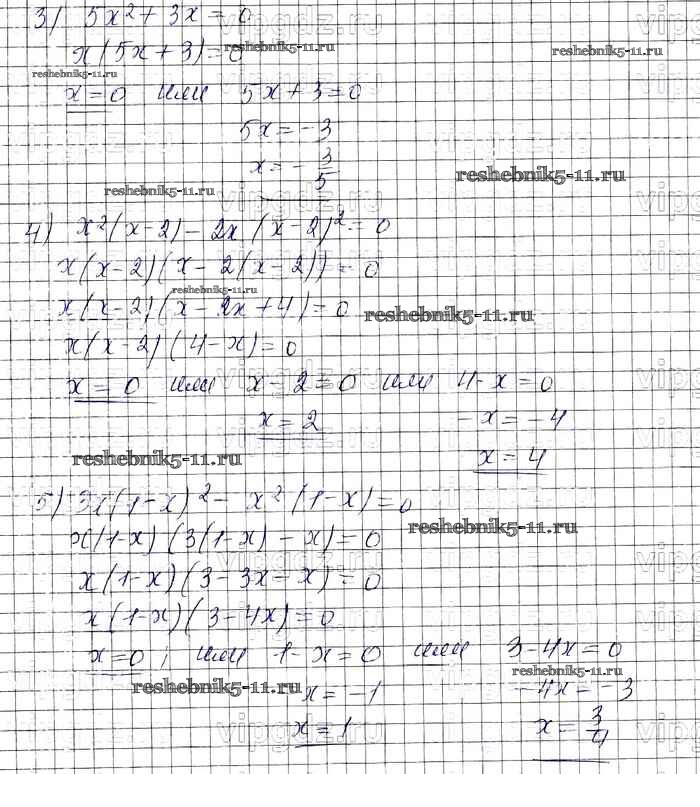 3) 5x² + 3x = 0
x(5x + 3) = 0
x = 0 или 5x + 3 = 0
5x = -3
x = - 3/5
4) x²(x - 2) - 2x(x - 2)² = 0
x(x - 2)(x - 2(x - 2)) = 0
x(x - 2)(x - 2x + 4) = 0
x(x - 2)(4 - x) = 0
x = 0 или x - 2 = 0 или 4 - x = 0
x = 2 -x = -4
x = 4
5) 3x(1 - x)² - x²(1 - x) = 0
x(1 - x)(3(1 - x) - x) = 0
x(1 - x)(3 - 3x - x) = 0
x(1 - x)(3 - 4x) = 0
x = 0; или 1 - x = 0 или 3 - 4x = 0
x = -1 -4x = -3
x = 1 x = 3/4
reshebnik5-11.ru
reshebnik5-11.ru
reshebnik5-11.ru
reshebnik5-11.ru
reshebnik5-11.ru
reshebnik5-11.ru
reshebnik5-11.ru
reshebnik5-11.ru
reshebnik5-11.ru
reshebnik5-11.ru
reshebnik5-11.ru
vipgdz.ru
vipgdz.ru
vipgdz.ru
vipgdz.ru
vipgdz.ru